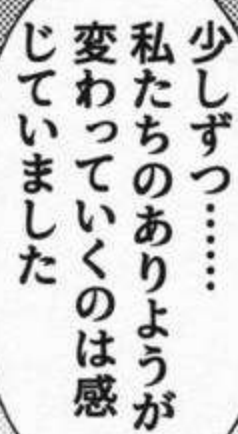 少しずつ……
私たちのありようが
変わっていくのは感
じていました